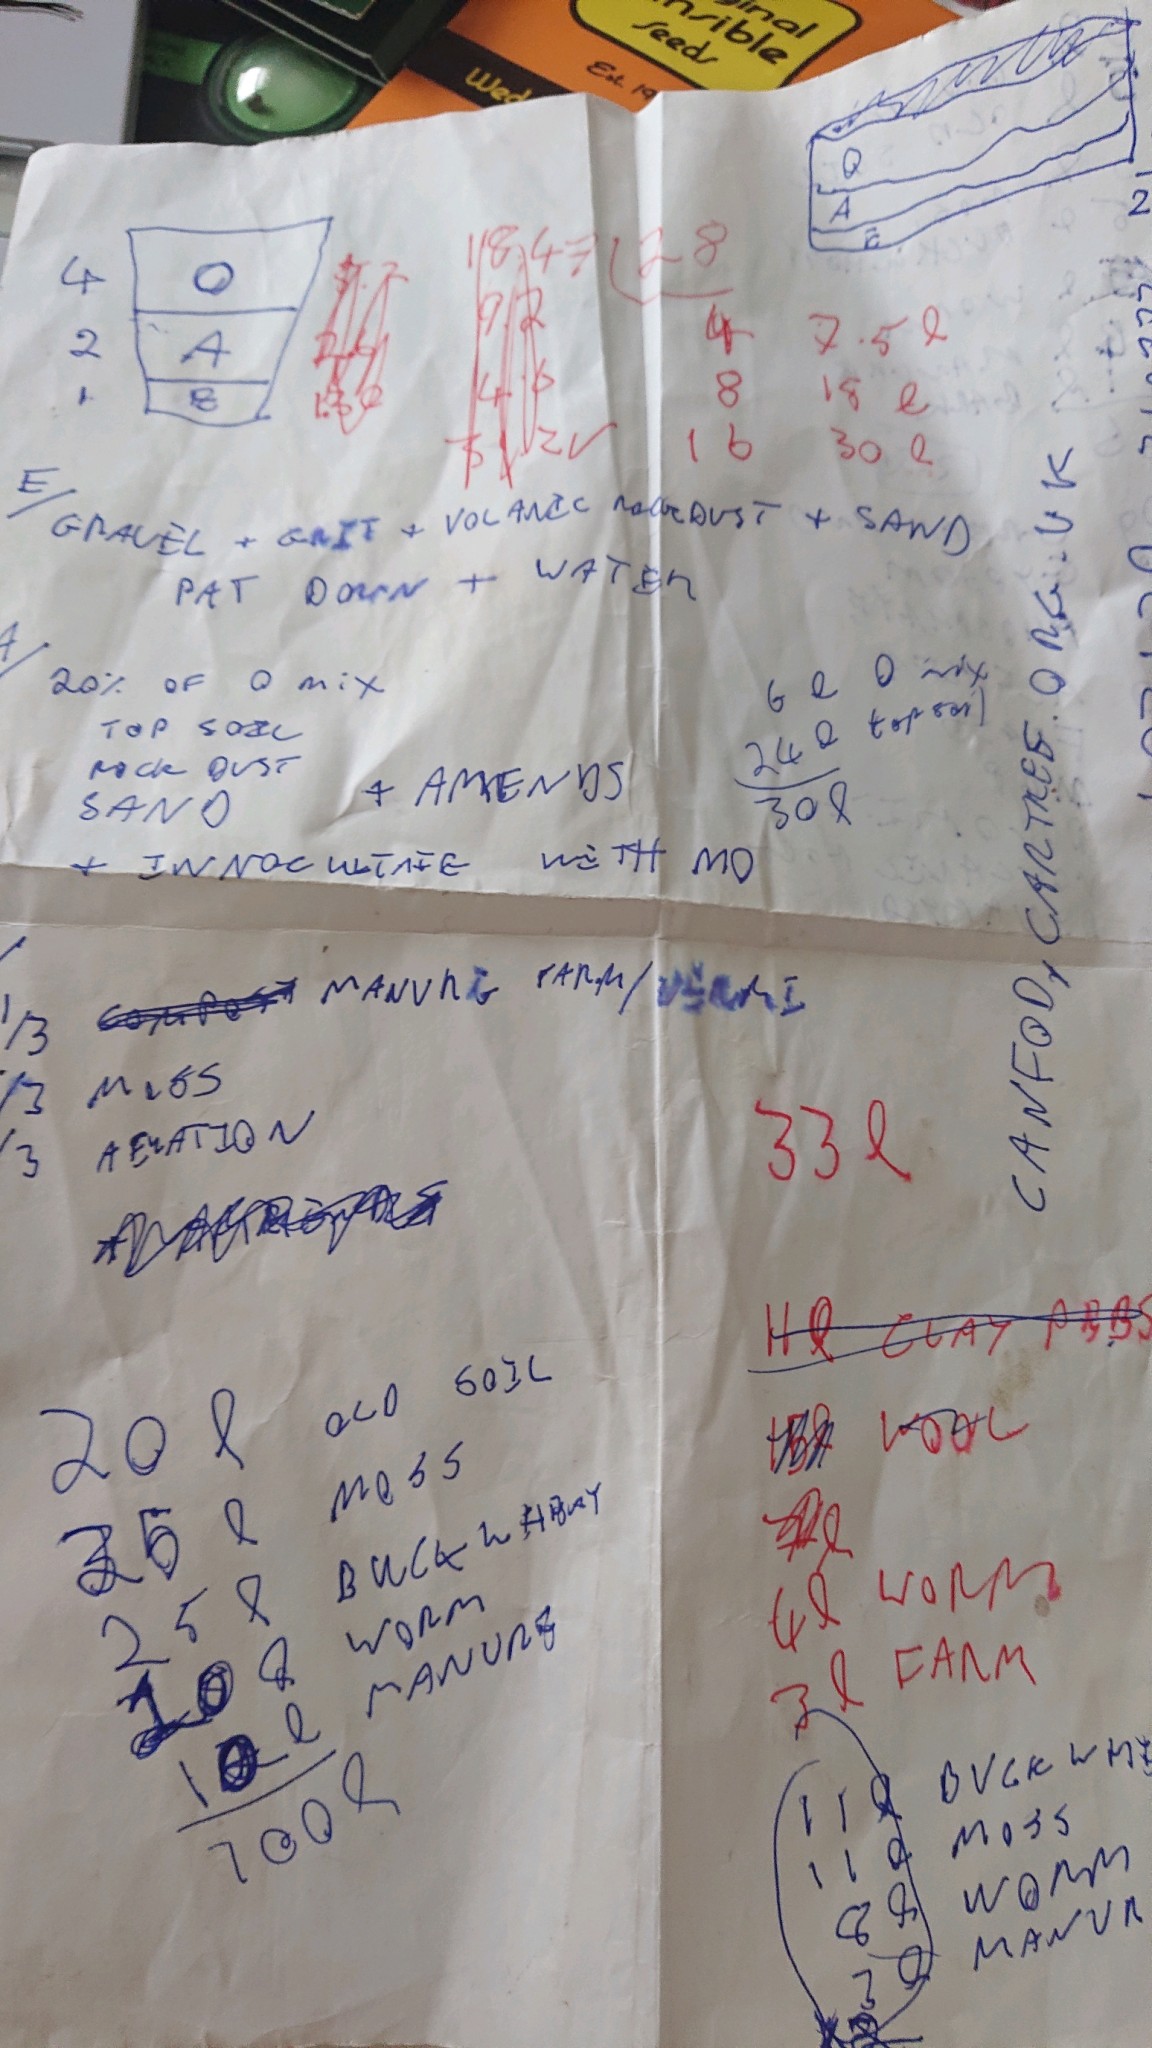 ginal
nsible
Seeds
Est. 19
Wed
O
A
E
4 O
2 A
1 E
18.4 = 28
9.2
4.6
4 7.5 l
8 18 l
16 30 l
E/
GRAVEL + GRIT + VOLANIC ROCKDUST + SAND
PAT DOWN + WATER
A/
20% OF O MIX
TOP SOIL
ROCK DUST
SAND + AMENDS
+ INNOCULTATE WITH MO
6 l O mix
24 l top soil
30 l
CANFOD, CARTREF.ORG.UK
1/3 COMPOST MANURE FARM/VERMI
1/3 MOSS
1/3 AERATION
33 l
11 l CLAY PEBBS
WOOL
4 l WORM
3 l FARM
20 l OLD SOIL
35 l MOSS
25 l BUCKWHEAT
10 l WORM
10 l MANURE
100 l
11 l BUCKWHE
11 l MOSS
8 l WORM
3 l MANUR